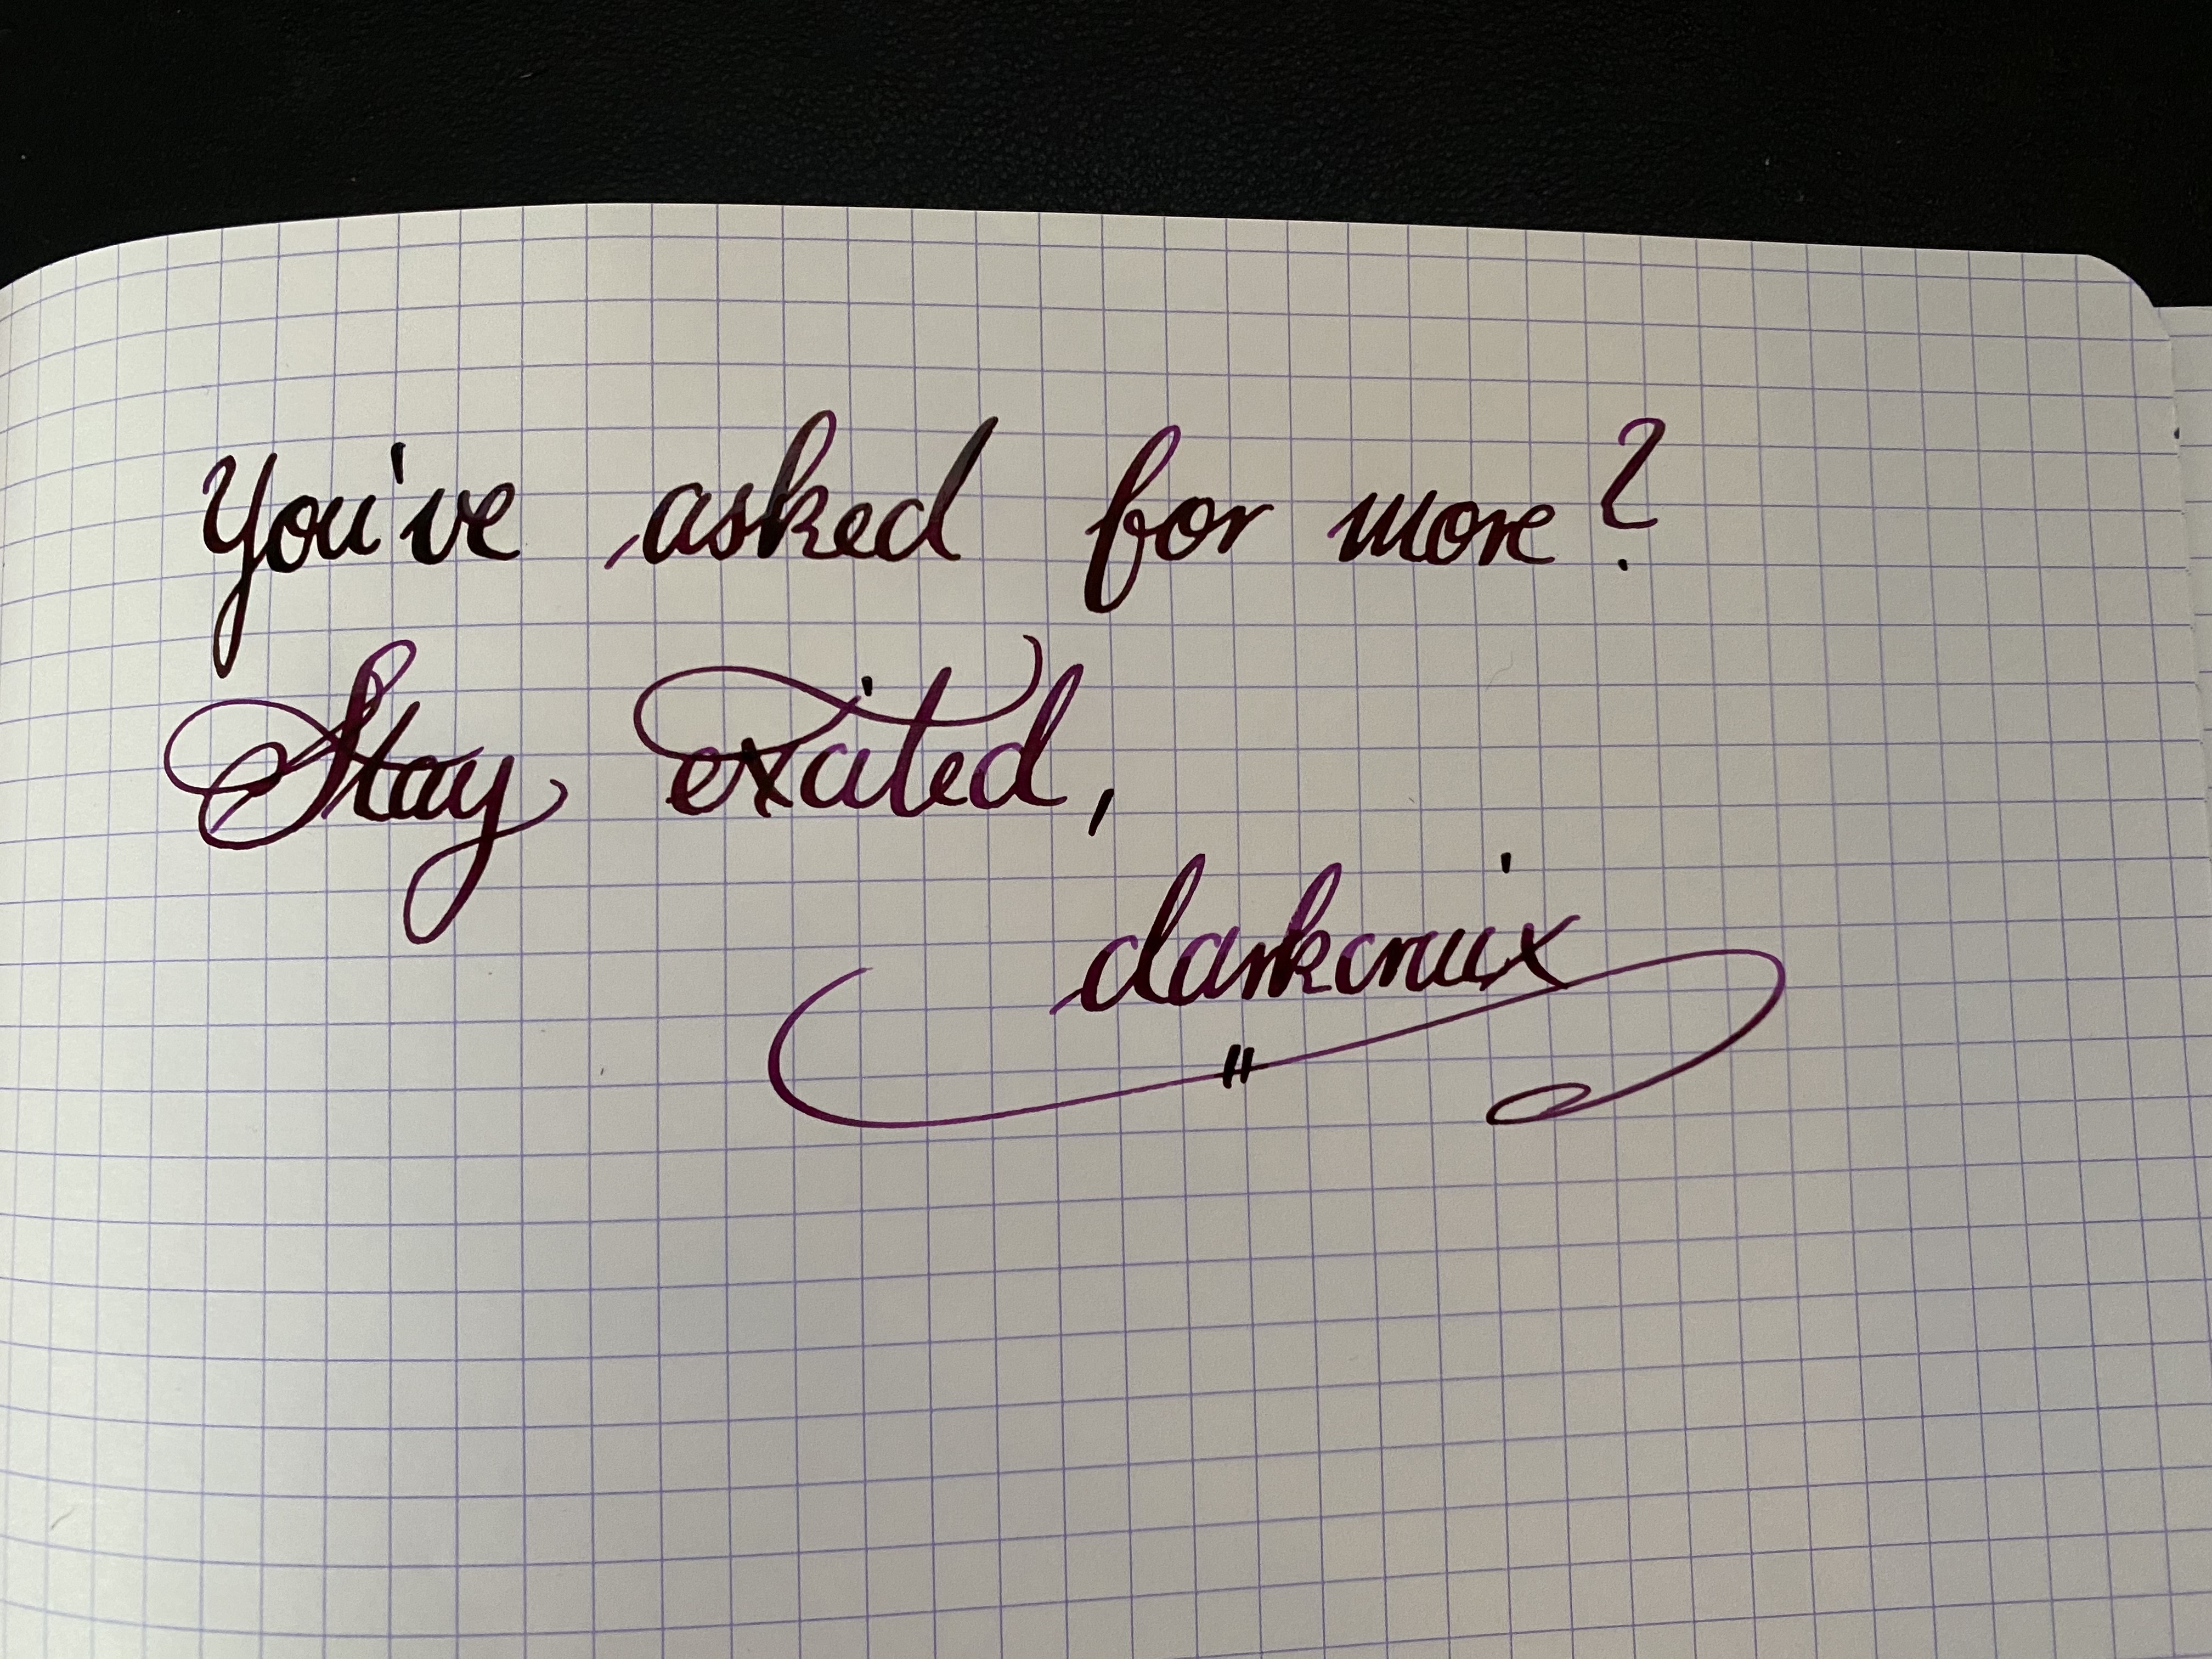 You've asked for more?
Stay exited,
darkcruix